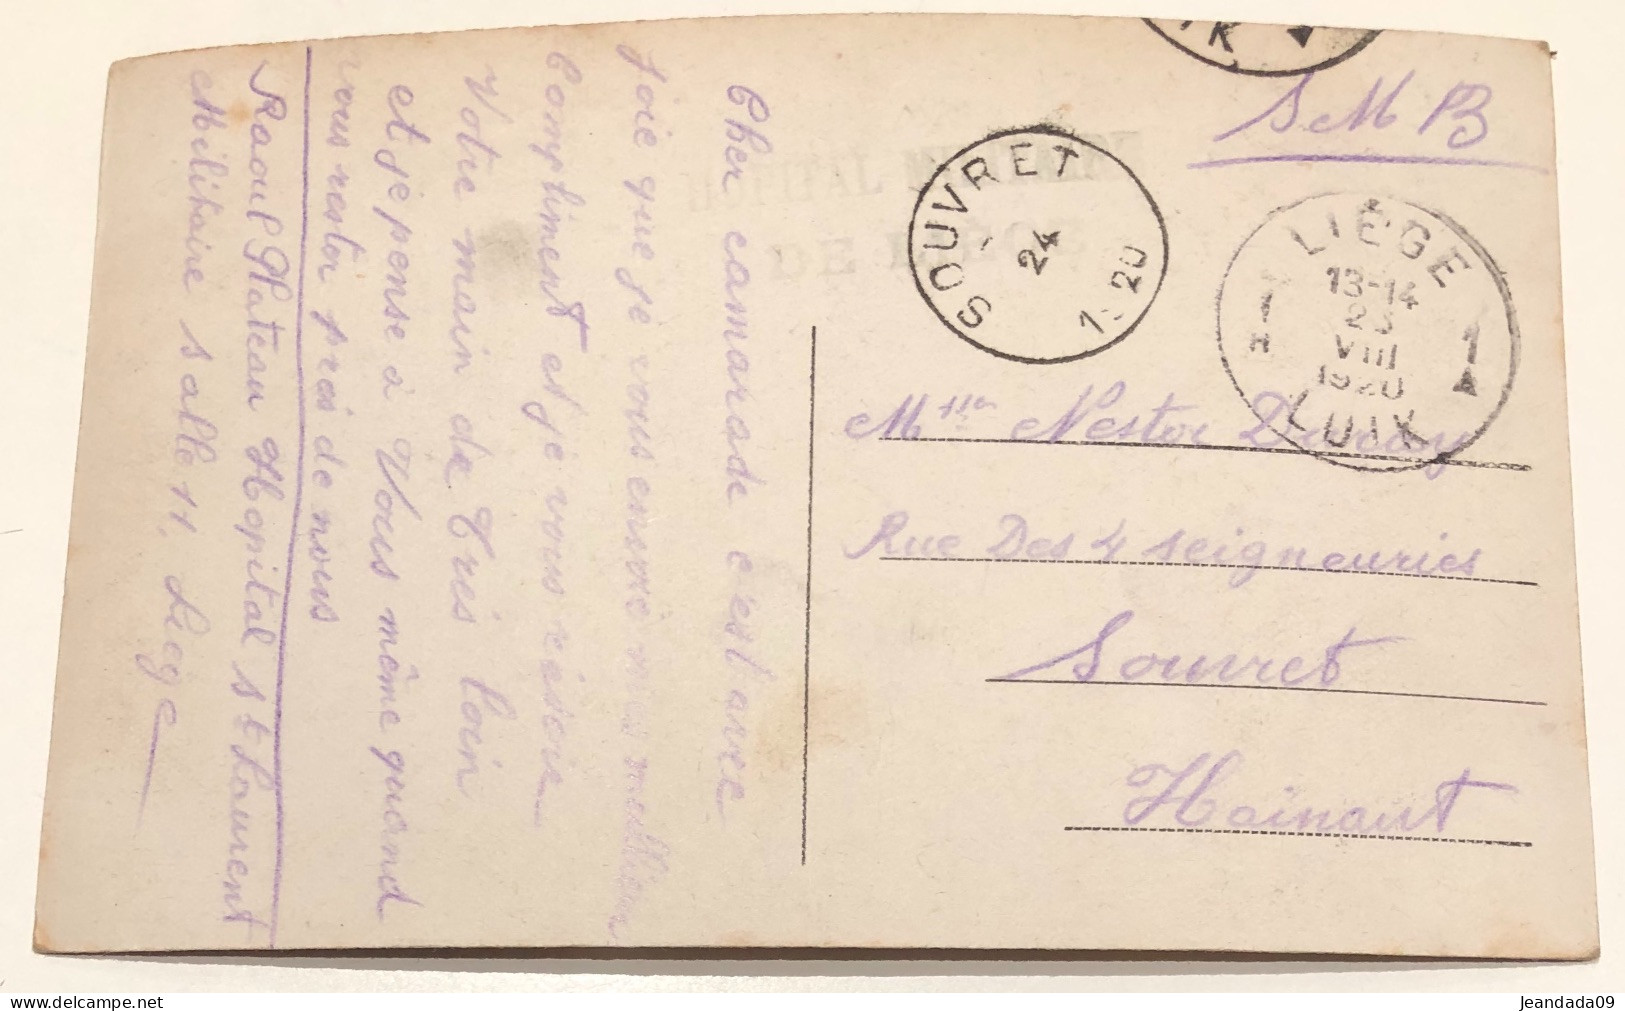 Cher camarade c'est avec
joie que je vous envoie mes meilleurs
Compliment et je vous
Votre main de Très loin
et je pense à Vous même quand
vous restor près de nous
Raoul Plateau Hopital st Laurent
Militaire salle 11. Liege
S M B
HOPITAL MILITAIRE
DE LIEGE
SOUVRET
24
1920
LIÈGE
13-14
VIII
1920
LUIK
1 1
Nestor
Rue Des 4 seigneuries
Souvret
Hainaut
jeandada09